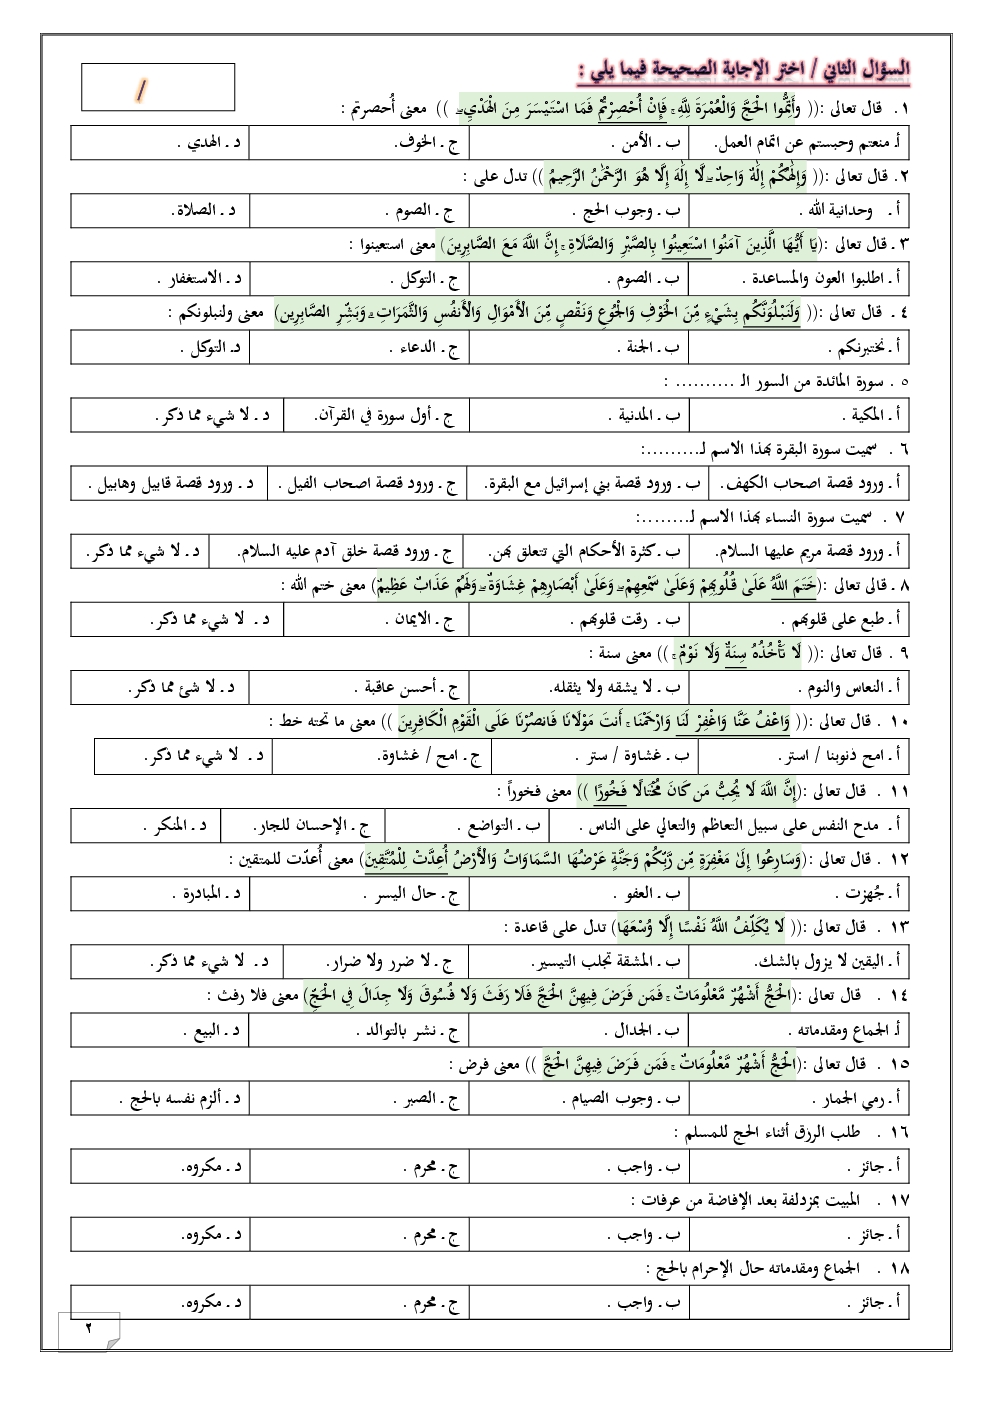 السؤال الثاني / اختر الإجابة الصحيحة فيما يلي :
/
١. قال تعالى :(( وَأَتِمُّوا الْحَجَّ وَالْعُمْرَةَ لِلَّهِ ۚ فَإِنْ أُحْصِرْتُمْ فَمَا اسْتَيْسَرَ مِنَ الْهَدْيِ ۖ )) معنى أُحصرتم :
أ. منعتم وحبستم عن اتمام العمل. ب ـ الأمن . ج ـ الخوف. د ـ الهدي .
٢. قال تعالى :(( وَإِلَٰهُكُمْ إِلَٰهٌ وَاحِدٌ ۖ لَّا إِلَٰهَ إِلَّا هُوَ الرَّحْمَٰنُ الرَّحِيمُ )) تدل على :
أ ـ وحدانية الله . ب ـ وجوب الحج . ج ـ الصوم . د ـ الصلاة.
٣ ـ قال تعالى :(يَا أَيُّهَا الَّذِينَ آمَنُوا اسْتَعِينُوا بِالصَّبْرِ وَالصَّلَاةِ ۚ إِنَّ اللَّهَ مَعَ الصَّابِرِينَ) معنى استعينوا :
أ ـ اطلبوا العون والمساعدة . ب ـ الصوم . ج ـ التوكل . د ـ الاستغفار .
٤ ـ قال تعالى :(( وَلَنَبْلُوَنَّكُم بِشَيْءٍ مِّنَ الْخَوْفِ وَالْجُوعِ وَنَقْصٍ مِّنَ الْأَمْوَالِ وَالْأَنفُسِ وَالثَّمَرَاتِ ۗ وَبَشِّرِ الصَّابِرِين) معنى ولنبلونكم :
أ ـ نختبرنكم . ب ـ الجنة . ج ـ الدعاء . د. التوكل .
٥ . سورة المائدة من السور الـ .......... :
أ ـ المكية . ب ـ المدنية . ج ـ أول سورة في القرآن. د ـ لا شيء مما ذكر .
٦ . سميت سورة البقرة بهذا الاسم لـ.........:
أ ـ ورود قصة اصحاب الكهف. ب ـ ورود قصة بني إسرائيل مع البقرة. ج ـ ورود قصة اصحاب الفيل . د ـ ورود قصة قابيل وهابيل .
٧ . سميت سورة النساء بهذا الاسم لـ........:
أ ـ ورود قصة مريم عليها السلام. ب ـ كثرة الأحكام التي تتعلق بهن. ج ـ ورود قصة خلق آدم عليه السلام. د ـ لا شيء مما ذكر .
٨ ـ قالى تعالى :(خَتَمَ اللَّهُ عَلَىٰ قُلُوبِهِمْ وَعَلَىٰ سَمْعِهِمْ ۖ وَعَلَىٰ أَبْصَارِهِمْ غِشَاوَةٌ ۖ وَلَهُمْ عَذَابٌ عَظِيمٌ) معنى ختم الله :
أ ـ طبع على قلوبهم . ب ـ رقت قلوبهم . ج ـ الايمان . د ـ لا شيء مما ذكر.
٩ . قال تعالى :(( لَا تَأْخُذُهُ سِنَةٌ وَلَا نَوْمٌ ۚ )) معنى سنة :
أ ـ النعاس والنوم . ب ـ لا يشقه ولا يثقله. ج ـ أحسن عاقبة . د ـ لا شئ مما ذكر.
١٠ . قال تعالى :(( وَاعْفُ عَنَّا وَاغْفِرْ لَنَا وَارْحَمْنَا ۚ أَنتَ مَوْلَانَا فَانصُرْنَا عَلَى الْقَوْمِ الْكَافِرِينَ )) معنى ما تحته خط :
أ ـ امح ذنوبنا / استر . ب ـ غشاوة / ستر . ج ـ امح / غشاوة. د ـ لا شيء مما ذكر.
١١ . قال تعالى :(إِنَّ اللَّهَ لَا يُحِبُّ مَن كَانَ مُخْتَالًا فَخُورًا )) معنى فخوراً :
أ ـ مدح النفس على سبيل التعاظم والتعالي على الناس . ب ـ التواضع . ج ـ الإحسان للجار. د ـ المنكر .
١٢ . قال تعالى :(وَسَارِعُوا إِلَىٰ مَغْفِرَةٍ مِّن رَّبِّكُمْ وَجَنَّةٍ عَرْضُهَا السَّمَاوَاتُ وَالْأَرْضُ أُعِدَّتْ لِلْمُتَّقِينَ) معنى أُعدّت للمتقين :
أ ـ جُهزت . ب ـ العفو . ج ـ حال اليسر . د ـ المبادرة .
١٣ . قال تعالى :(( لَا يُكَلِّفُ اللَّهُ نَفْسًا إِلَّا وُسْعَهَا) تدل على قاعدة :
أ ـ اليقين لا يزول بالشك. ب ـ المشقة تجلب التيسير. ج ـ لا ضرر ولا ضرار. د ـ لا شيء مما ذكر .
١٤ . قال تعالى :(الْحَجُّ أَشْهُرٌ مَّعْلُومَاتٌ ۚ فَمَن فَرَضَ فِيهِنَّ الْحَجَّ فَلَا رَفَثَ وَلَا فُسُوقَ وَلَا جِدَالَ فِي الْحَجِّ) معنى فلا رفث :
أ. الجماع ومقدماته . ب ـ الجدال . ج ـ نشر بالتوالد . د ـ البيع .
١٥ . قال تعالى :(الْحَجُّ أَشْهُرٌ مَّعْلُومَاتٌ ۚ فَمَن فَرَضَ فِيهِنَّ الْحَجَّ )) معنى فرض :
أ ـ رمي الجمار . ب ـ وجوب الصيام . ج ـ الصبر . د ـ ألزم نفسه بالحج .
١٦ . طلب الرزق أثناء الحج للمسلم :
أ ـ جائز . ب ـ واجب . ج ـ محرم . د ـ مكروه.
١٧ . المبيت بمزدلفة بعد الإفاضة من عرفات :
أ ـ جائز . ب ـ واجب . ج ـ محرم . د ـ مكروه.
١٨ . الجماع ومقدماته حال الإحرام بالحج :
أ ـ جائز . ب ـ واجب . ج ـ محرم . د ـ مكروه.
٢